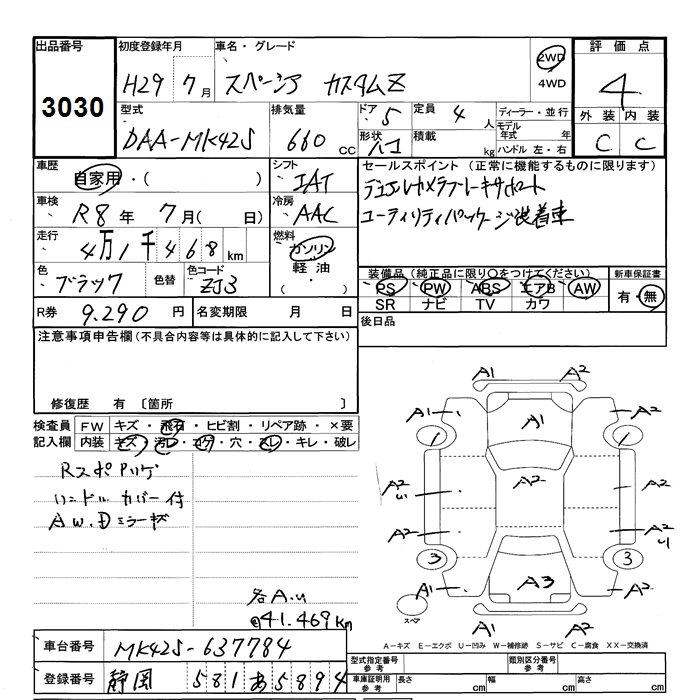 出品番号 初度登録年月 車名・グレード 評価点
3030 H29 7月 スペーシア カスタムZ 2WD 4WD 4
型式 排気量 ドア 5 定員 4人 ディーラー・並行 外装 内装
DAA-MK42S 660cc 形状 積載 kg モデル年式 年 ハンドル 左・右 C C
車歴 自家用・( ) シフト IAT セールスポイント (正常に機能するものに限ります)
車検 R8年 7月( 日) 冷房 AAC デュアルカメラブレーキサポート
走行 4万1千468km 燃料 ガソリン ユーティリティパッケージ装着車
軽油・( )
色 ブラック 色替 色コード ZJ3 装備品(純正品に限り○をつけてください) 新車保証書
PS PW ABS エアB AW 有・無
SR ナビ TV カワ
R券 9.290円 名変期限 月 日 後日品
注意事項申告欄(不具合内容等は具体的に記入して下さい)
修復歴 有 〔箇所 〕
検査員 FW キズ・飛石・ヒビ割・リペア跡・×要
記入欄 内装 キズ・汚レ・コゲ・穴・スレ・キレ・破レ
RスポPリケ
ハンドルカバー付
AW.Dミラーキズ
各A.U
41.469km
A1 A2
A1 A1 A2
1 1
A2 U A2 A2
A2 A2 U
3 3
A1 A3 A2
A1 A2
スペア
A-キズ E-エクボ U-凹み W-補修跡 S-サビ C-腐食 XX-交換済
車台番号 MK42S-637784 型式指定番号 参考 類別区分番号 参考
登録番号 静岡 581 あ5894 車庫証明用 参考 長さ cm 幅 cm 高さ cm